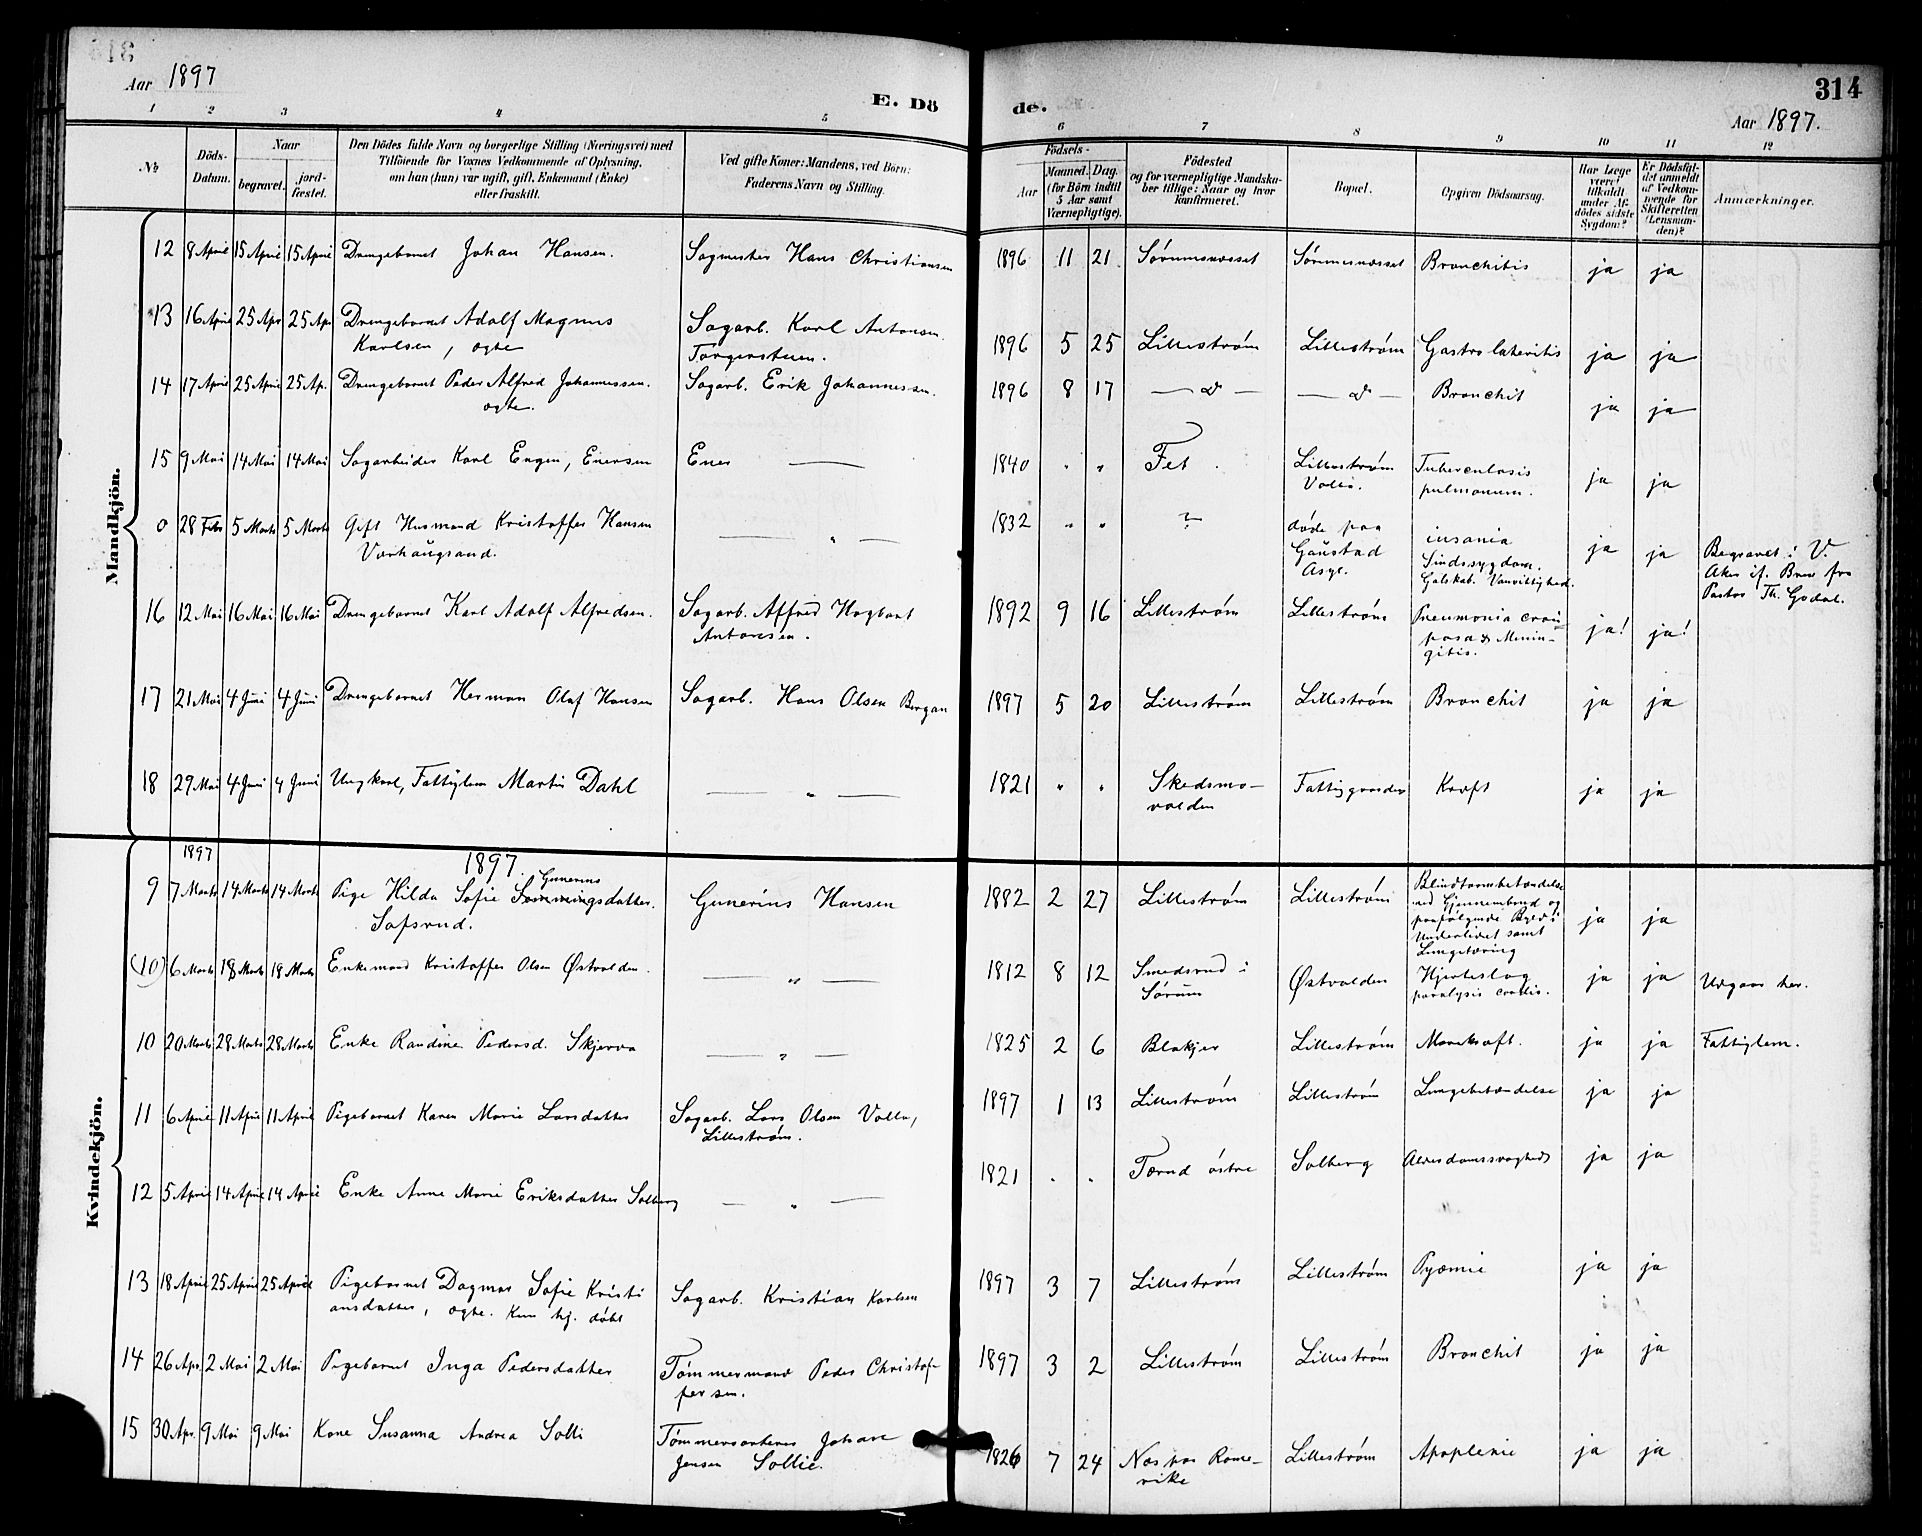 Aar 1897
E. Dö
de.
314
Aar 1897.
1 2 3 4 5 6 7 8 9 10 11 12
No
Döds-Datum.
Naar
begravet.
jord-fæstet.
Den Dödes fulde Navn og borgerlige Stilling (Næringsvei) med
Tilföiende for Voxnes Vedkommende af Oplysning,
om han (hun) var ugift, gift, Enkemand (Enke)
eller fraskilt.
Ved gifte Koner: Mandens, ved Börn:
Faderens Navn og Stilling.
Födsels-
Aar
Maaned. Dag.
(for Börn indtil
5 Aar samt
Værnepligtige).
Födested
og for værnepligtige Mandska-
ber tillige: Naar og hvor
konfirmeret.
Bopæl.
Opgiven Dödsaarsag.
Har Læge
været
tilkaldt
under Af-
dödes sidste
Sygdom?
Er Dödsfal-
det anmeldt
af Vedkom-
mende for
Skifteretten
(Lensman-
den)?
Anmærkninger.
Mandkjön.
12 8 April 15 April 15 April Drengebarnet Johan Hansen. Sagmester Hans Christiansen 1896 11 21 Sørumsnesset Sørumsnesset Bronchitis ja ja
13 16 April 25 Apr 25 Apr Drengebarnet Adolf Magnus Sagarb. Karl Antonsen 1896 5 25 Lillestrøm Lillestrøm ja ja
Karlsen, ægte Torgersteen.
14 17 April 25 April 25 Ap. Drengebarnet Peder Alfred Johannessen. Sagarb. Erik Johannessen. 1896 8 17 — d — — d — Bronchit ja ja
ægte.
15 9 Mai 14 Mai 14 Mai Sagarbeider Karl Engen, Enersen Ener — 1840 " " Fet Lillestrøm Tuberculosis ja ja
Volla. pulmonum.
0 28 Febr 5 Marts 5 Marts Gift Husmand Kristoffer Hansen — " — 1832 " " ? døde paa insania ja ja Begravet i V.
Varhaugsand. Gaustad Sindssygdom. Aker if. Brev fra
Asyl. Galskab. Vanvittighed. Pastor Th. Godal.
16 12 Mai 16 Mai 16 Mai Drengebarnet Karl Adolf Alfredsen. Sagarb. Alfred Hagbart 1892 9 16 Lillestrøm Lillestrøm Pneumonia crou- ja! ja!
Antonsen. posa & Menin-
gitis.
17 21 Mai 4 Juni 4 Juni Drengebarnet Herman Olaf Hansen Sagarb. Hans Olsen Bergan 1897 5 20 Lillestrøm Lillestrøm Bronchit ja ja
18 29 Mai 4 Juni 4 Juni Ungkarl, Fattiglem Martin Dahl — " — 1821 " " Skedsmo- Fattiggaarden Kræft ja ja
volden
Kvindekjön.
1897 1897.
Gunerius
9 7 Marts 14 Marts 14 Marts Pige Hilda Sofie Gunerius Hansen 1882 2 27 Lillestrøm Lillestrøm Blindtarmbetændelse ja ja
Sofsrud. med Gjennembrud og
paafølgende Byld i
Underlivet samt
Lungetæring
(10) 6 Marts 18 Marts 18 Marts Enkemand Kristoffer Olsen Østvolden. — " — 1812 8 12 Smedsrud i Østvolden Hjerteslag ja ja Udgaar her.
Sørum paralysis cordis.
10 20 Marts 28 Marts 28 Marts Enke Randine Pedersd. Skjerva — " — 1825 2 6 Blakjer Lillestrøm Mavekræft. ja ja Fattiglem.
11 6 April 11 April 11 April Pigebarnet Karen Marie Larsdatter Sagarb. Lars Olsen Volla, 1897 1 13 Lillestrøm Lillestrøm Lungebetændelse ja ja
Lillestrøm.
12 5 April 14 April 14 April Enke Anne Marie Eriksdatter Solberg — " — 1821 . . Tærud østre Solberg Alderdomssvaghed ja ja
13 18 April 25 April 25 April Pigebarnet Dagmar Sofie Kristi Sagarb. Kristian Karlsen 1897 3 7 Lillestrøm Lillestrøm Pyæmie ja ja
ansdatter, ægte. Kun hj. døbt
14 26 Apr. 2 Mai 2 Mai Pigebarnet Inga Pedersdatter Tømmermand Peder Christof- 1897 3 2 Lillestrøm Lillestrøm Bronchit ja ja
fersen.
15 30 Apr. 9 Mai 9 Mai Kone Susanna Andrea Solli Johan 1826 7 24 Nes paa Rome- Lillestrøm Apoplexie ja ja
Jensen Sollie. rike